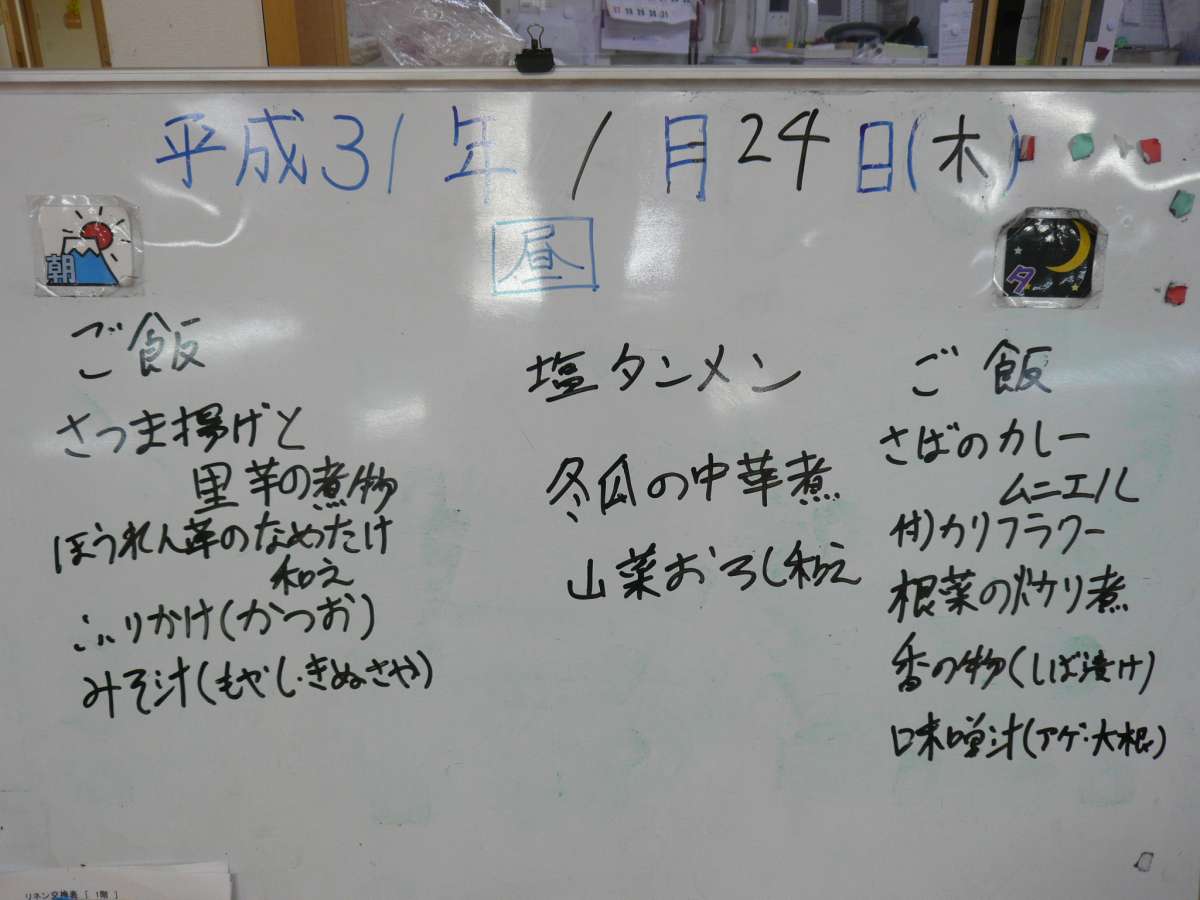 平成31年1月24日(木)
朝
ご飯
さつま揚げと
里芋の煮物
ほうれん草のなめたけ
和え
ふりかけ(かつお)
みそ汁(もやし・きぬさや)
昼
塩タンメン
冬瓜の中華煮
山菜おろし和え
夕
ご飯
さばのカレー
ムニエル
付)カリフラワー
根菜の炒り煮
香の物(しば漬け)
味噌汁(アゲ・大根)
リネン交換表 [ 1階 ]